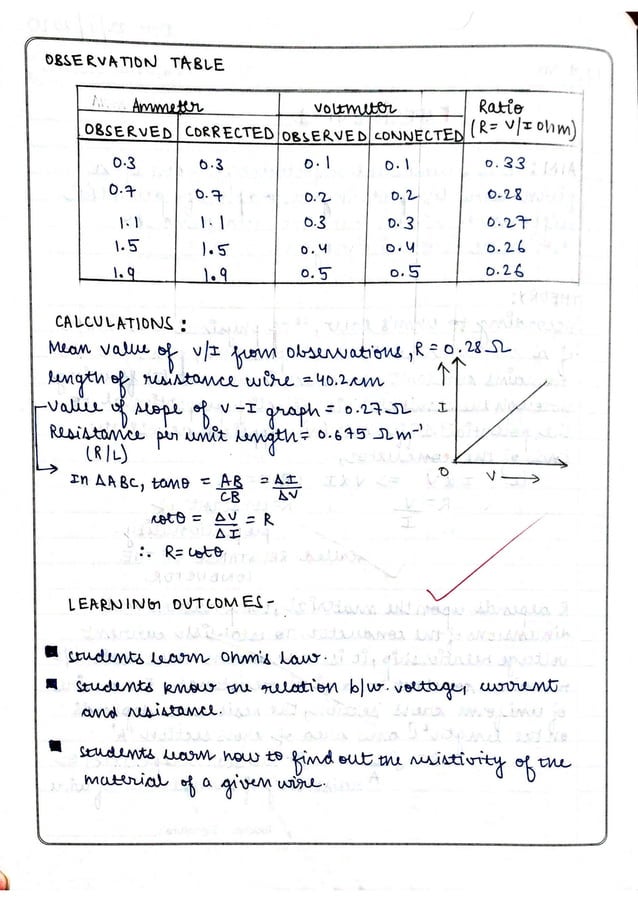 OBSERVATION TABLE
Ammeter Voltmeter Ratio
OBSERVED CORRECTED OBSERVED CONNECTED (R = V/I ohm)
0.3 0.3 0.1 0.1 0.33
0.7 0.7 0.2 0.2 0.28
1.1 1.1 0.3 0.3 0.27
1.5 1.5 0.4 0.4 0.26
1.9 1.9 0.5 0.5 0.26
CALCULATIONS :
Mean value of V/I from observations, R = 0.28 Ω
length of resistance wire = 40.2 cm
value of slope of V-I graph = 0.27 Ω
Resistance per unit length = 0.675 Ω m⁻¹
(R/L)
I
O V →
In △ABC, tanθ = AB/CB = ΔI/ΔV
cotθ = ΔV/ΔI = R
∴ R = cotθ
LEARNING OUTCOMES -
■ students learn Ohm's Law.
■ students know the relation b/w. voltage, current
and resistance.
■ students learn how to find out the resistivity of the
material of a given wire.